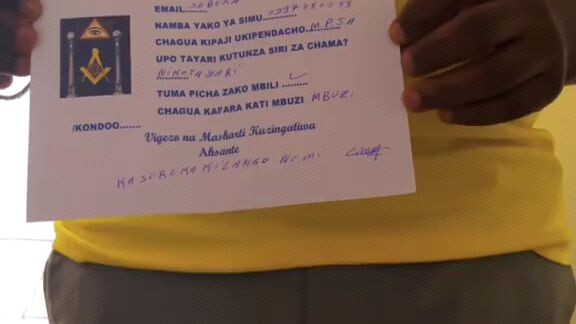 EMAIL SEBERA
NAMBA YAKO YA SIMU............
CHAGUA KIPAJI UKIPENDACHO....M.PSA
UPO TAYARI KUTUNZA SIRI ZA CHAMA?
NIKOTAYARI
TUMA PICHA ZAKO MBILI ........
CHAGUA KAFARA KATI MBUZI MBUZI
/KONDOO.......
Vigezo na Masharti Kuzingatiwa
Ahsante